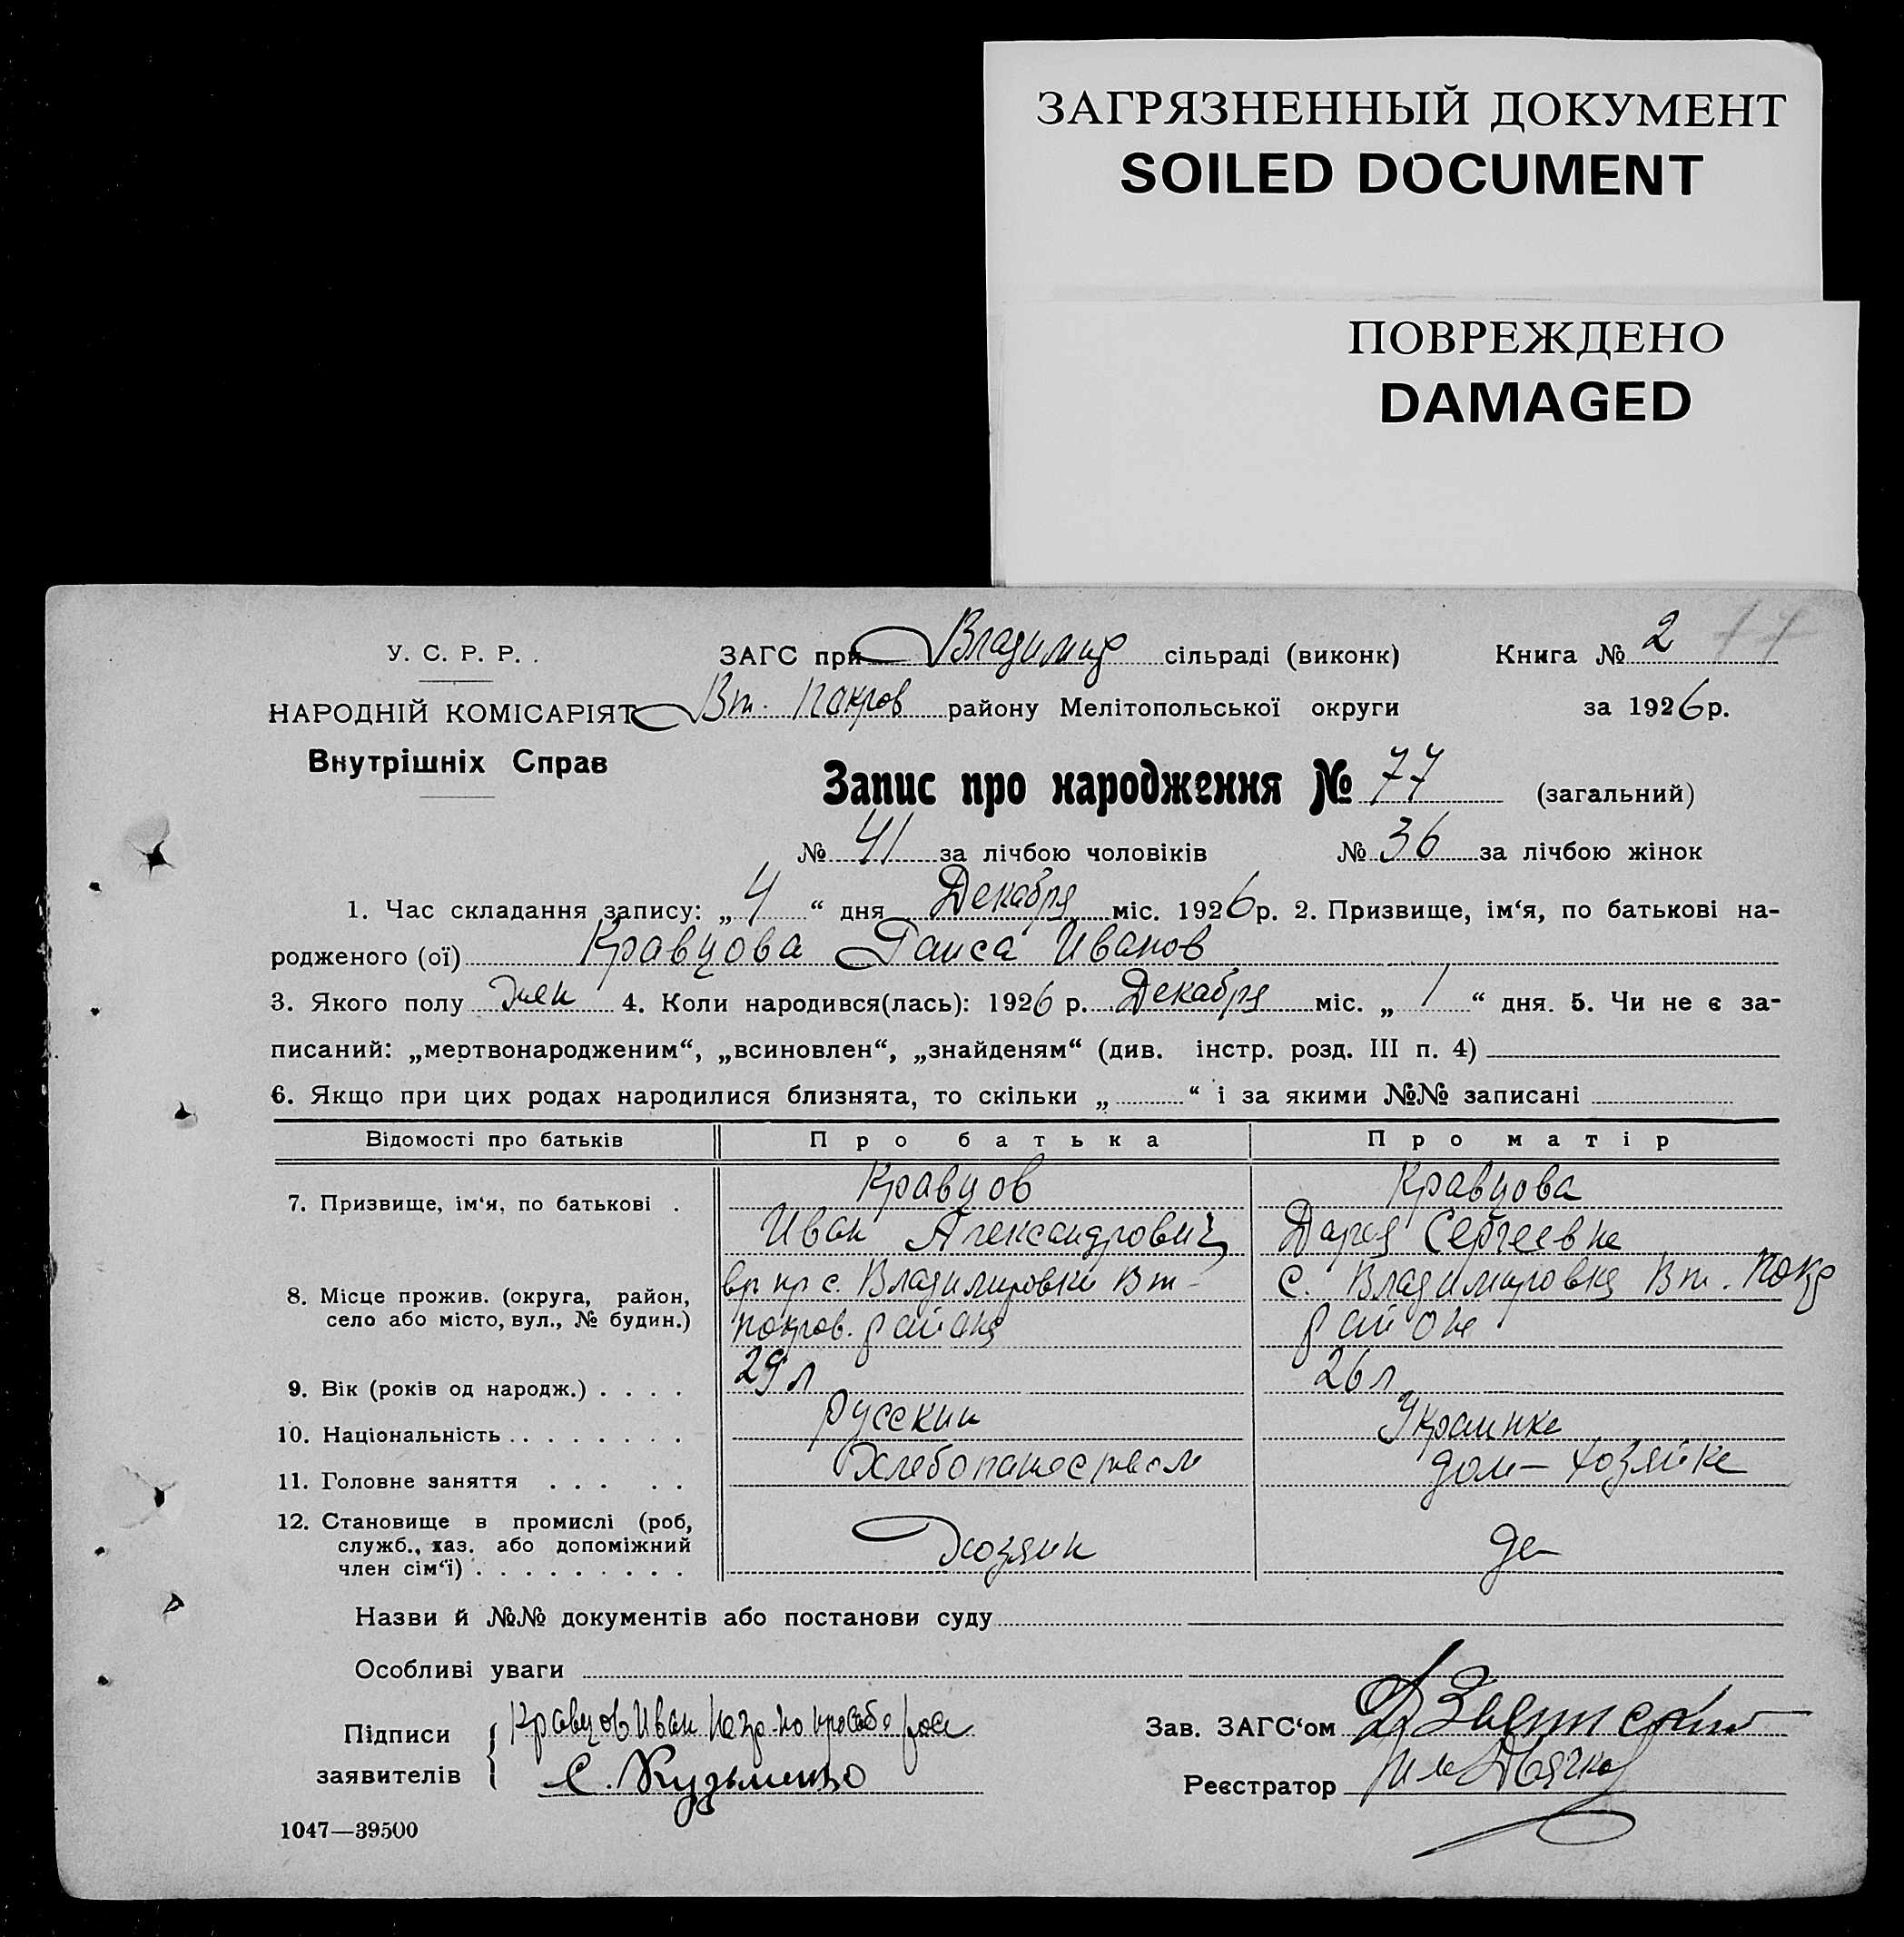 ЗАГРЯЗНЕННЫЙ ДОКУМЕНТ
SOILED DOCUMENT
ПОВРЕЖДЕНО
DAMAGED
У. С. Р. Р. ЗАГС при Владимир сільраді (виконк) Книга № 2 77
НАРОДНІЙ КОМІСАРІЯТ Вт. Покров району Мелітопольської округи за 1926 р.
Внутрішніх Справ
Запис про народження № 77 (загальний)
№ 41 за лічбою чоловіків № 36 за лічбою жінок
1. Час складання запису: „ 4 “ дня Декабря міс. 1926 р. 2. Призвище, ім‘я, по батькові на-
родженого (ої) Кравцова Раиса Иванов
3. Якого полу жен 4. Коли народився(лась): 1926 р. Декабря міс. „ 1 “ дня. 5. Чи не є за-
писаний: „мертвонародженим“, „всиновлен“, „знайденям“ (див. інстр. розд. III п. 4)
6. Якщо при цих родах народилися близнята, то скільки „ “ і за якими №№ записані
Відомості про батьків Про батька Про матір
7. Призвище, ім‘я, по батькові . Кравцов Кравцова
Иван Александрович Дарья Сергеевна
8. Місце прожив. (округа, район, вр пр с. Владимировки Вт- с. Владимировка Вт. Покр
село або місто, вул., № будин.) покров. района района
9. Вік (років од народж.) . . . . 29 л 26 л
10. Національність . . . . . . . . Русский Украинка
11. Головне заняття . . . . . Хлебопашеством дом-хозяйка
12. Становище в промислі (роб,
служб., хаз. або допоміжний Хозяин
член сім‘ї) . . . . . . . . .
Назви й №№ документів або постанови суду
Особливі уваги
Підписи Кравцов Иван Зав. ЗАГС‘ом
заявителів С. Кузьменко Реєстратор
1047—39500